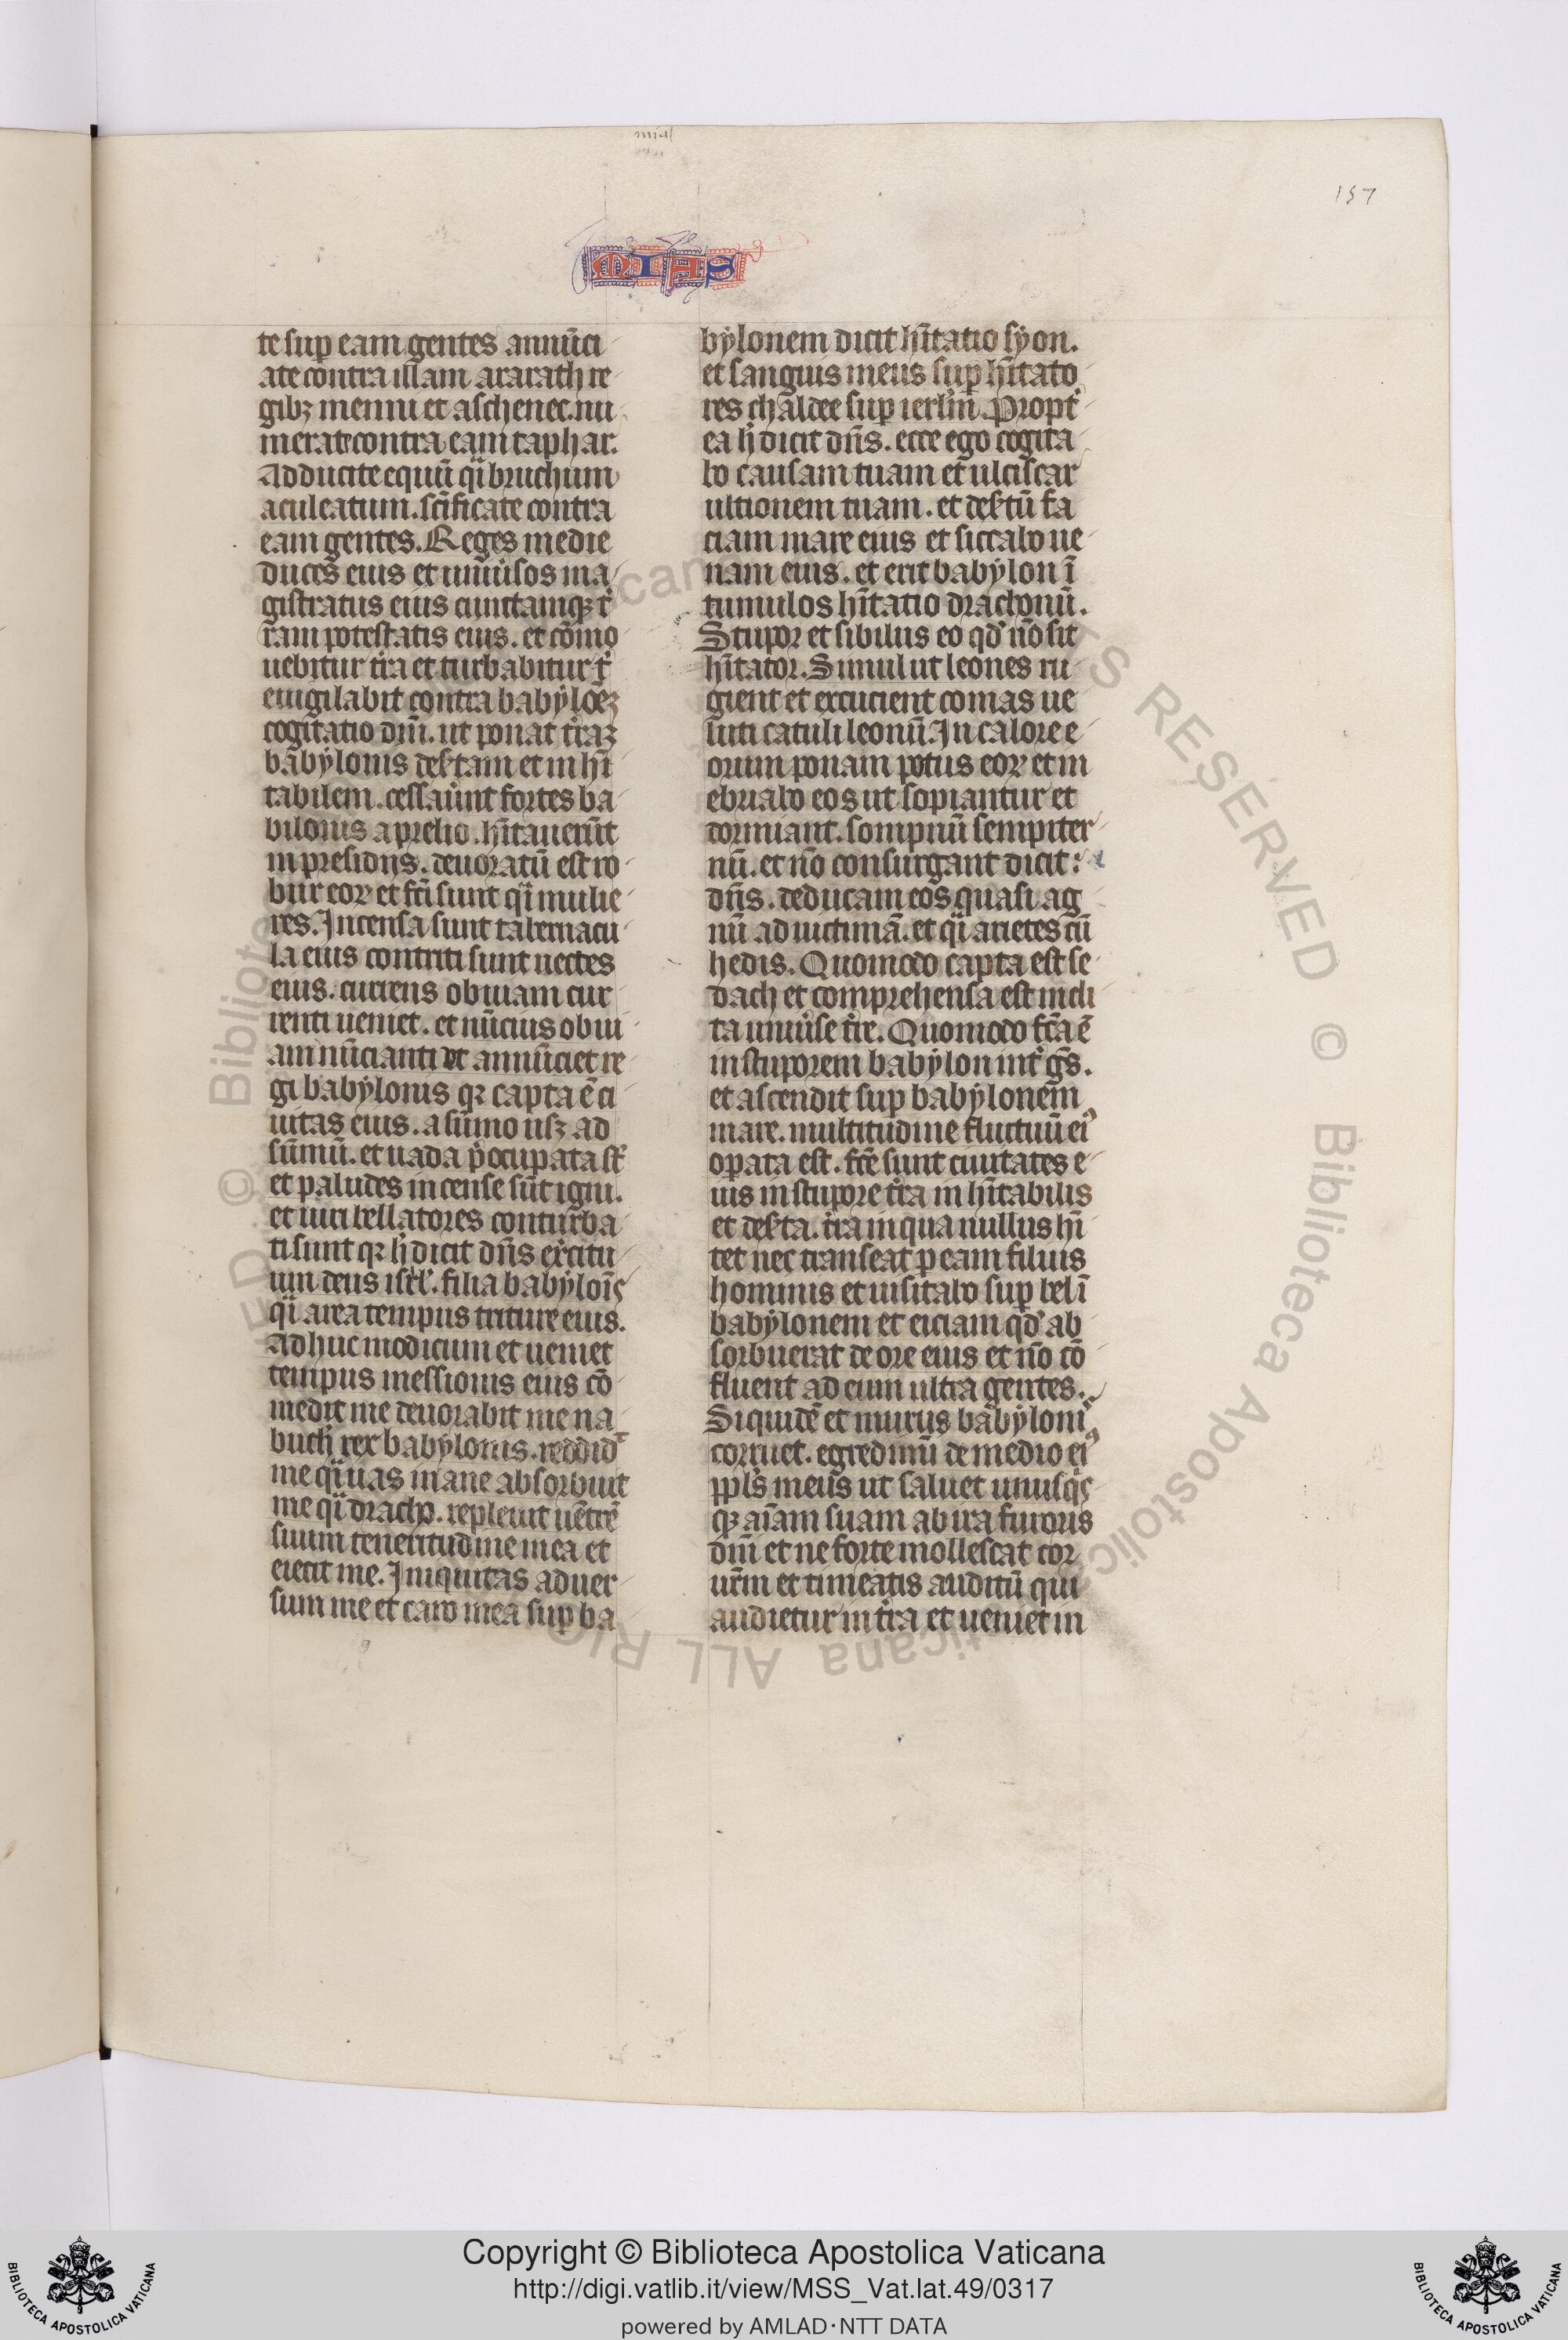 157
MIAS
te sup̱ eam gentes annũci
ate contra illam ararath re
gibꝫ menni et aschenec. nu
merate contra eam taphar.
Adducite equũ qͣi bruchum
aculeatum. sc̃ificate contra
eam gentes. Reges medie
duces eius et uniũsos ma
gistratus eius cunctamqꝫ t̾
ram potestatis eius. et cõmo
uebitur t̾ra et turbabitur q̾
euigilabit contra babÿloẽꝫ
cogitatio dñi. ut ponat t̾raꝫ
babÿlonis deẜtam et in hĩ
tabilem. cessau̾unt fortes ba
bilonis a prelio. hĩtauerũt
in presidiis. deuoratũ est ro
bur eoꝝ et fc̃i sunt qͣi mulie
res. Incensa sunt tabernacu
la eius contriti sunt uectes
eius. currens obuiam cur
renti ueniet. et nũcius obui
am nũcianti ut annũciet re
gi babÿlonis qꝛ capta ẽ ci
uitas eius. a sũmo usꝫ ad
sũmũ. et uada p̾ocupata st̾
et paludes incense sũt igni.
et uiri bellatores conturba
ti sunt qꝛ h̾ dicit dñs ex̾citu
um deus isr̃l̾. filia babÿloĩs
qͣi area tempus triture eius.
Adhuc modicum et ueniet
tempus messionis eius cõ
medit me deuorabit me na
buch̾ rex babÿlonis. reddid̾
me qͣi uas inane absorbuit
me qͣi dracho. repleuit uẽtrẽ
suum teneritudine mea et
eiecit me. Iniquitas aduer
sum me et caro mea sup̱ ba
bÿlonem dicit hĩtatio sÿon.
et sanguis meus sup̱ hĩtato
res chaldee sup̱ ierl̃m. Propt̾
ea h̾ dicit dñs. ecce ego cogita
bo causam tuam et ulciscar
ultionem tuam. et deẜtũ fa
ciam mare eius et siccabo ue
nam eius. et erit babÿlon ĩ
tumulos hĩtatio drachonũ.
Stupor et sibilus eo qd̾ nõ sit
hĩtator. Simul ut leones ru
gient et excucient comas ue
luti catuli leonũ. In calore e
orum ponam potus eoꝝ et in
ebriabo eos ut sopiantur et
dormiant. sompnũ sempiter
nũ. et nõ consurgant dicit
dñs. deducam eos quasi ag
nũ ad uictimã. et qͣi arietes cũ
hedis. Quomodo capta est se
dach et comprehensa est incli
ta uniũse t̾re. Quomodo fc̃a ẽ
in stuporem babÿlon int̾ gẽs.
et ascendit sup̱ babÿlonem
mare. multitudine fluctuũ eiꝰ
operata est. fc̃e sunt ciuitates e
ius in stupore t̾ra in hĩtabilis
et deẜta. t̾ra in qua nullus hĩ
tet nec transeat p̱ eam filius
hominis et uisitabo sup̱ bel ĩ
babÿlonem et eiciam qd̾ ab
sorbuerat de ore eius et nõ cõ
fluent ad eum ultra gentes.
Siquidẽ et murus babÿloniꝰ
corruet. egredimĩ de medio eiꝰ
ppl̾s meus ut saluet unusqͥs
qꝫ aĩam suam ab ira furoris
dñi et ne forte mollescat cor
ur̃m et timeatis auditũ qui
audietur in t̾ra et ueniet in
Copyright © Biblioteca Apostolica Vaticana
http://digi.vatlib.it/view/MSS_Vat.lat.49/0317
powered by AMLAD·NTT DATA
BIBLIOTECA APOSTOLICA VATICANA
BIBLIOTECA APOSTOLICA VATICANA